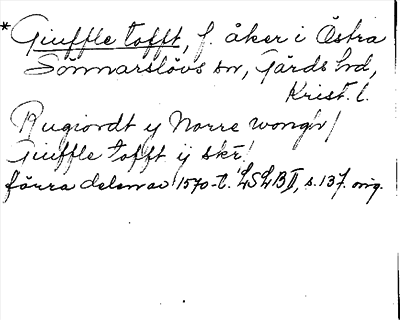 * Giuffle tofft, f. åker i Östra
Sönnarslövs sn, Gärds hd,
Krist. l.
Rugiordt y Norre wong'r/
Giuffle tofft ij skr!
förra delen av 1570-t. LSLB II, s. 137. orig.